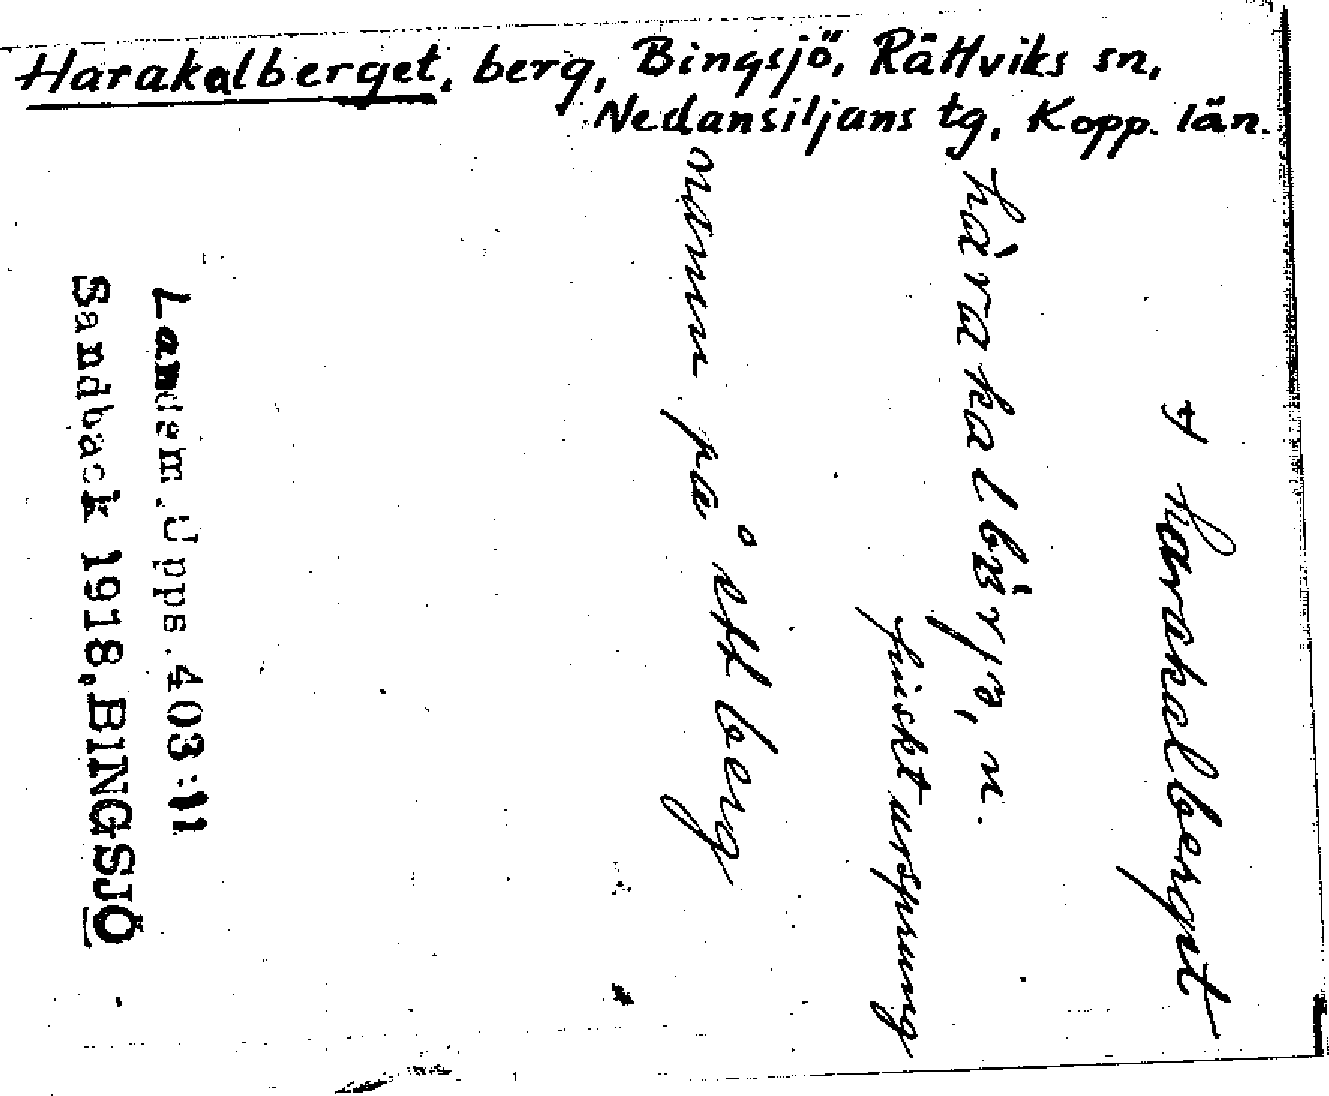 Harakalberget, berg, Bingsjö, Rättviks sn,
Nedansiljans tg, Kopp. län.
+ harakalberget
hàrakalbæ̀rjə, n.
finskt ursprung
namn på ett berg
Landsm. Upps. 403:11
Sandback 1918, BINGSJÖ